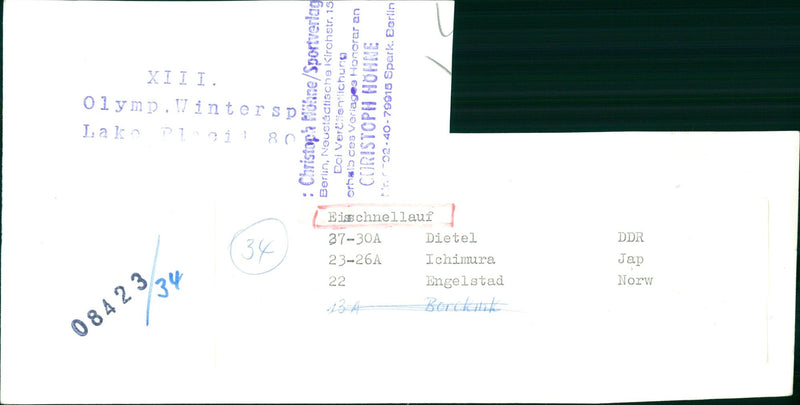 XIII.
Olymp.Wintersp
Lake Placid 80
: Christoph Höhne/Sportverlag
Berlin, Neustädtische Kirchstr. 15
Bei Veröffentlichung
erhalb des Verlages Honorar an
CHRISTOPH HÖHNE
02-40-79915 Spark. Berlin
Eisschnellauf
27-30A Dietel DDR
23-26A Ichimura Jap
22 Engelstad Norw
13A
34
08423/34